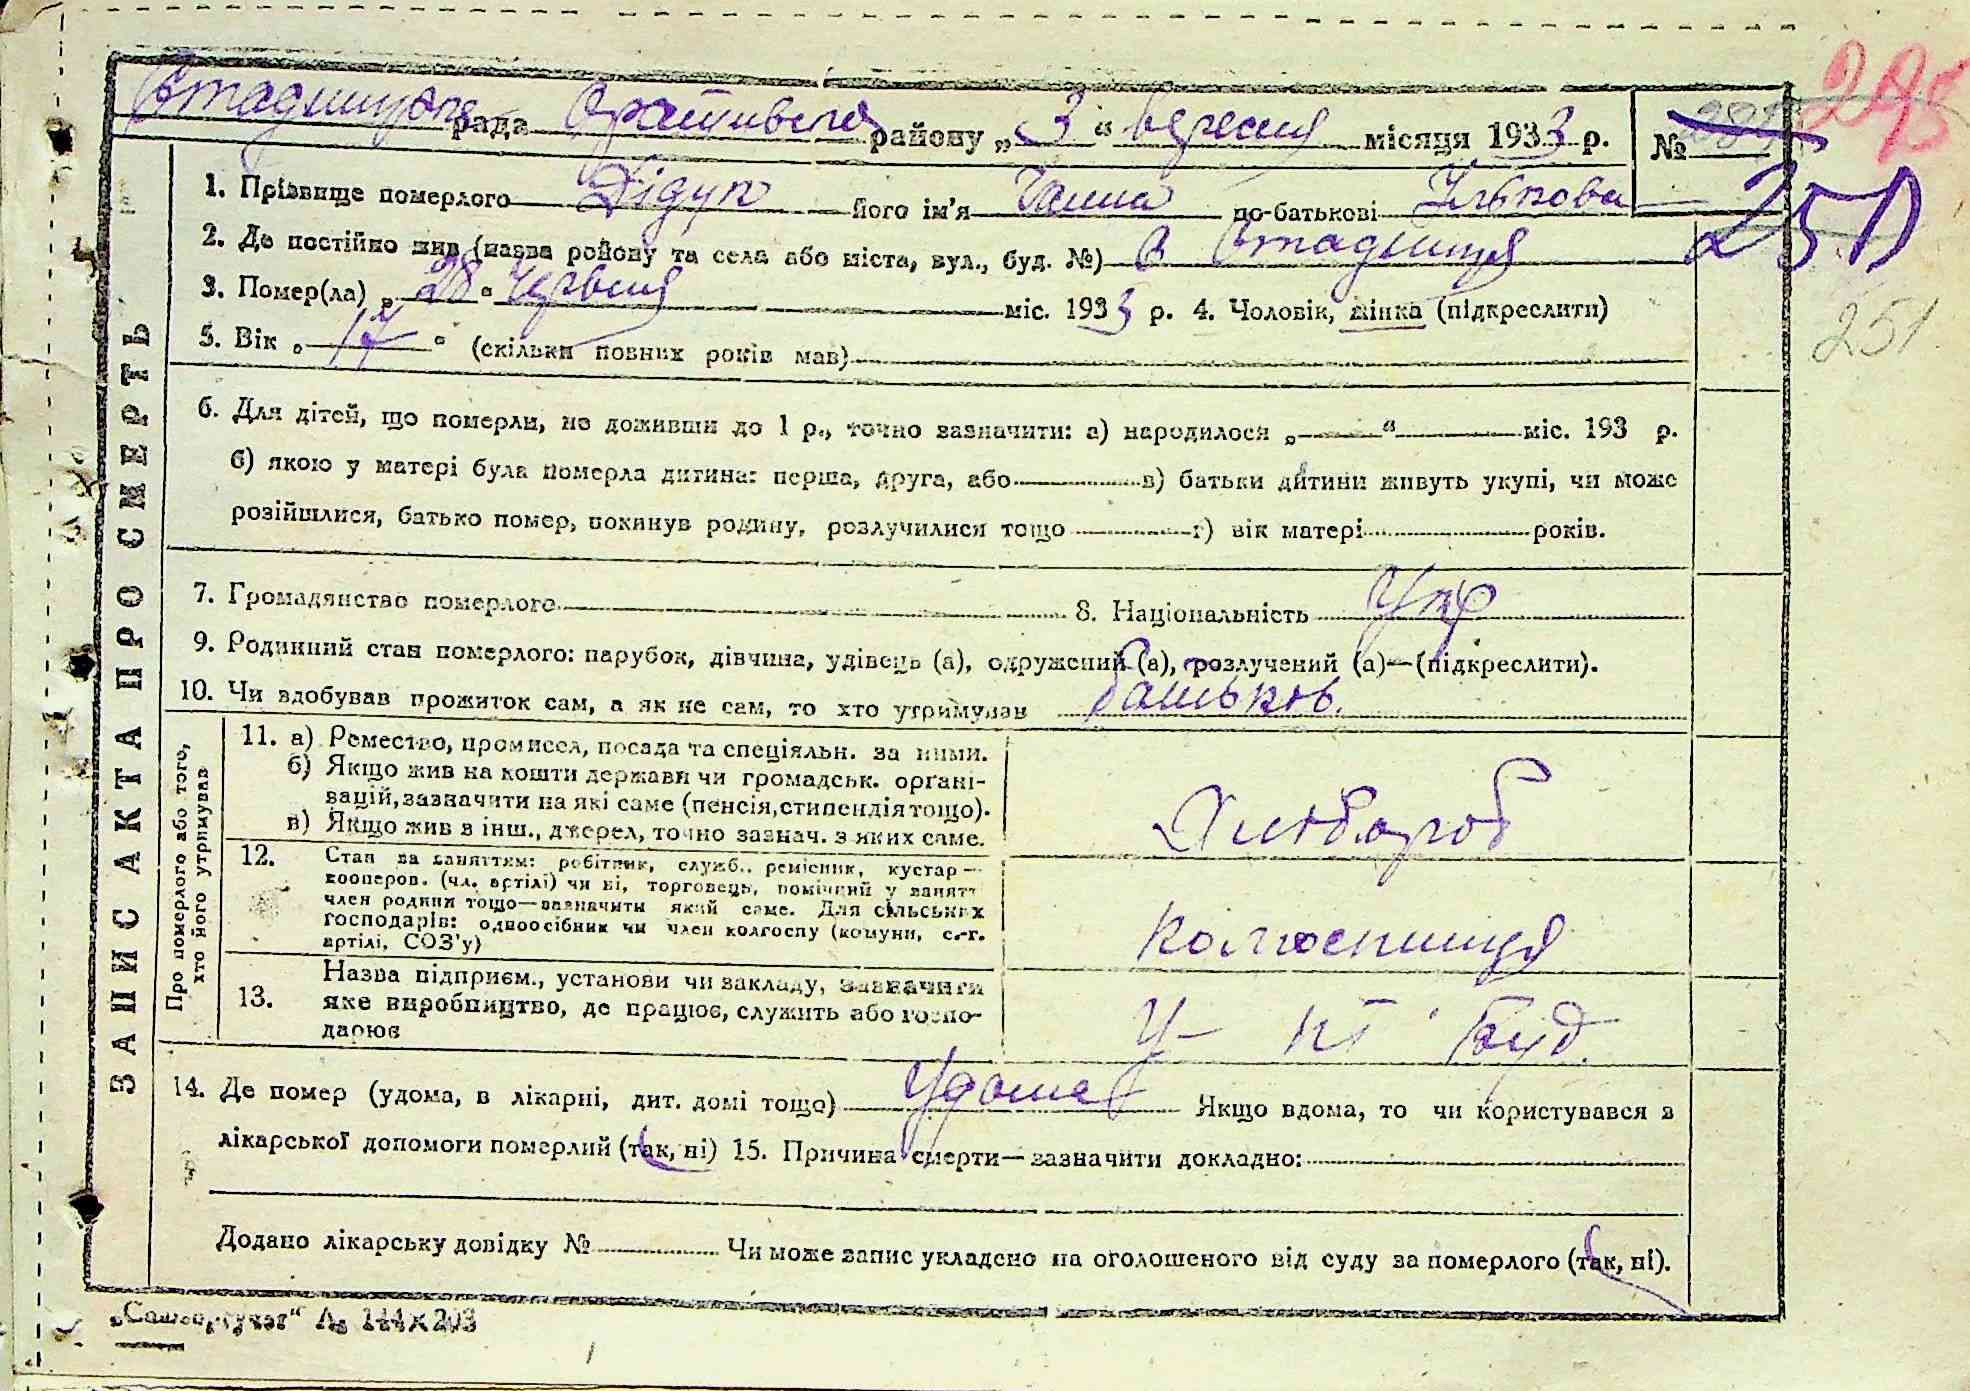 295
рада Оратівського району „3“ вересня місяця 1933 р. №
1. Прізвище померлого Дідук його ім'я Ганна по-батькові Ількова
250
2. Де постійно жив (назва району та села або міста, вул., буд. №) с Стадниця
3. Помер(ла) „28“ Червня міс. 1933 р. 4. Чоловік, жінка (підкреслити)
251
5. Вік „17“ (скільки повних років мав)
6. Для дітей, що померли, не доживши до 1 р., точно зазначити: а) народилося „ “ міс. 193 р.
б) якою у матері була померла дитина: перша, друга, або в) батьки дитини живуть укупі, чи може
розійшлися, батько помер, покинув родину, розлучилися тощо г) вік матері років.
7. Громадянство померлого 8. Національність Укр
9. Родинний стан померлого: парубок, дівчина, удівець (а), одружений (а), розлучений (а)—(підкреслити).
10. Чи здобував прожиток сам, а як не сам, то хто утримував батьків.
ЗАПИС АКТА ПРО СМЕРТЬ
Про померлого або того, хто його утримував
11. а) Ремество, промисел, посада та спеціяльн. за ними.
б) Якщо жив на кошти держави чи громадськ. органі-
зацій, зазначити на які саме (пенсія, стипендія тощо).
в) Якщо жив з інш., джерел, точно зазнач. з яких саме.
Хлібороб
12. Стан за заняттям: робітник, служб., ремісник, кустар—
кооперов. (чл. артілі) чи ні, торговець, помічний у занятт
член родини тощо—зазначити який саме. Для сільських
господарів: одноосібник чи член колгоспу (комуни, с.-г.
артілі, СОЗ'у)
колгоспниця
13. Назва підприєм., установи чи закладу, зазначити
яке виробництво, де працює, служить або госпо-
дарює
14. Де помер (удома, в лікарні, дит. домі тощо) Удома Якщо вдома, то чи користувався з
лікарської допомоги померлий (так, ні) 15. Причина смерти—зазначити докладно:
Додано лікарську довідку № Чи може запис укладено на оголошеного від суду за померлого (так, ні).
144×203